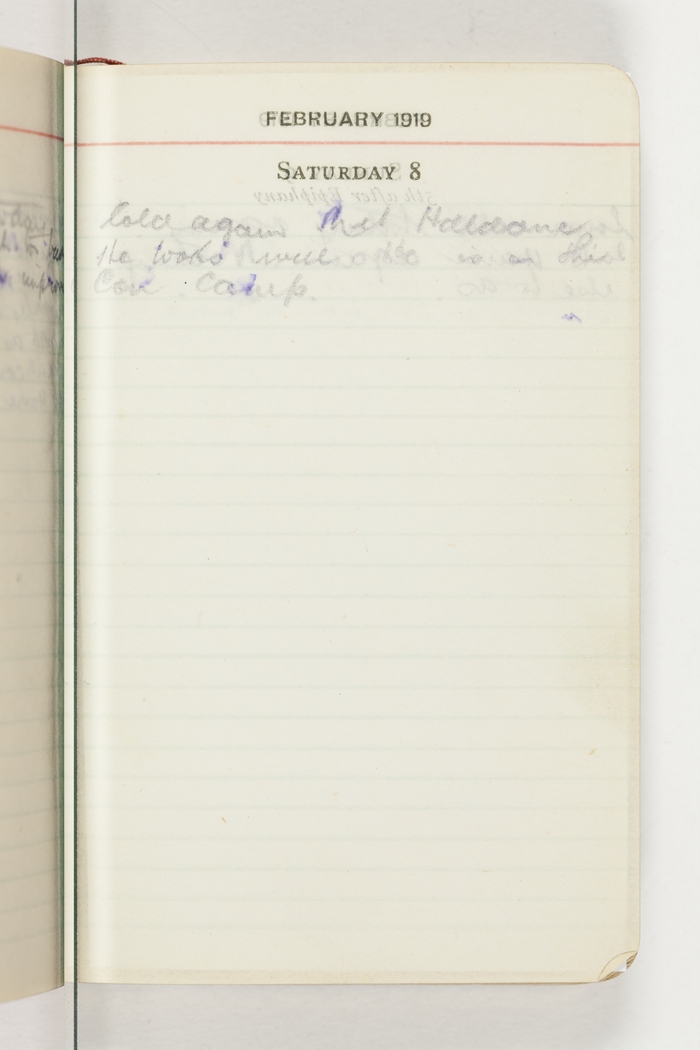 FEBRUARY 1919
SATURDAY 8
Cold again Met Haldane
He looks well & is in this
Con. Camp.